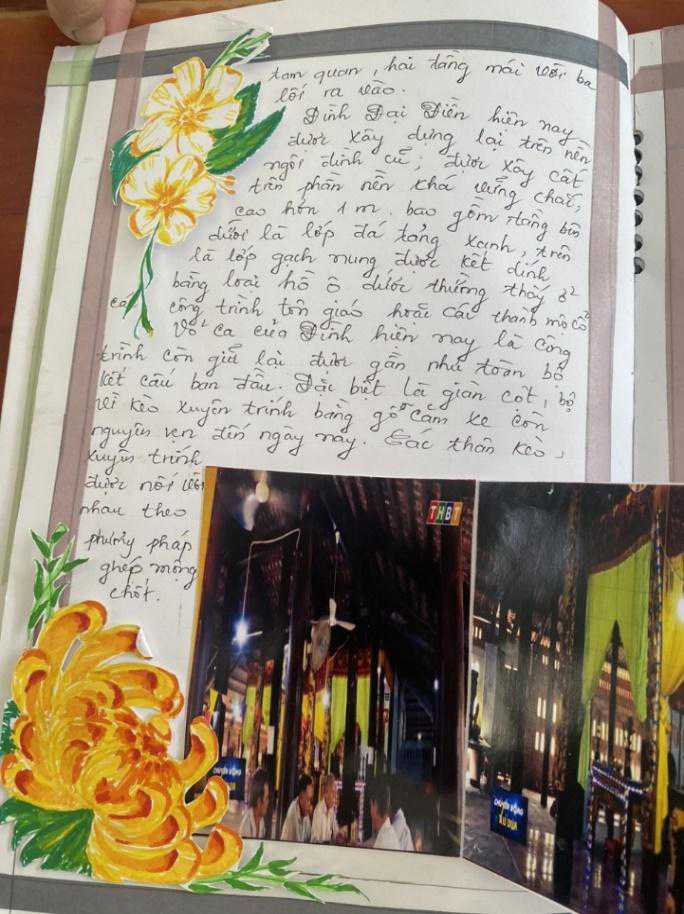 tam quan, hai tầng mái với ba
lối ra vào.
Đình Đại Điền hiện nay
được xây dựng lại trên nền
ngôi đình cũ; được xây cất
trên phần nền khá vững chắc,
cao hơn 1 m. bao gồm tầng bên
dưới là lớp đá tảng xanh, trên
là lớp gạch nung được kết dính
bằng loại hồ ô dước thường thấy ở
các công trình tôn giáo hoặc các thành mộ cổ
Võ ca của Đình hiện nay là công
trình còn giữ lại được gần như toàn bộ
kết cấu ban đầu. Đặc biệt là giàn cột, bộ
vì kèo xuyên trính bằng gỗ căm xe còn
nguyên vẹn đến ngày nay. Các thân kèo,
xuyên trính
được nối với
nhau theo
phương pháp
ghép mộng
chốt.
THBT
CHUYỂN ĐỘNG
XỨ DỪA
CHUYỂN ĐỘNG
XỨ DỪA